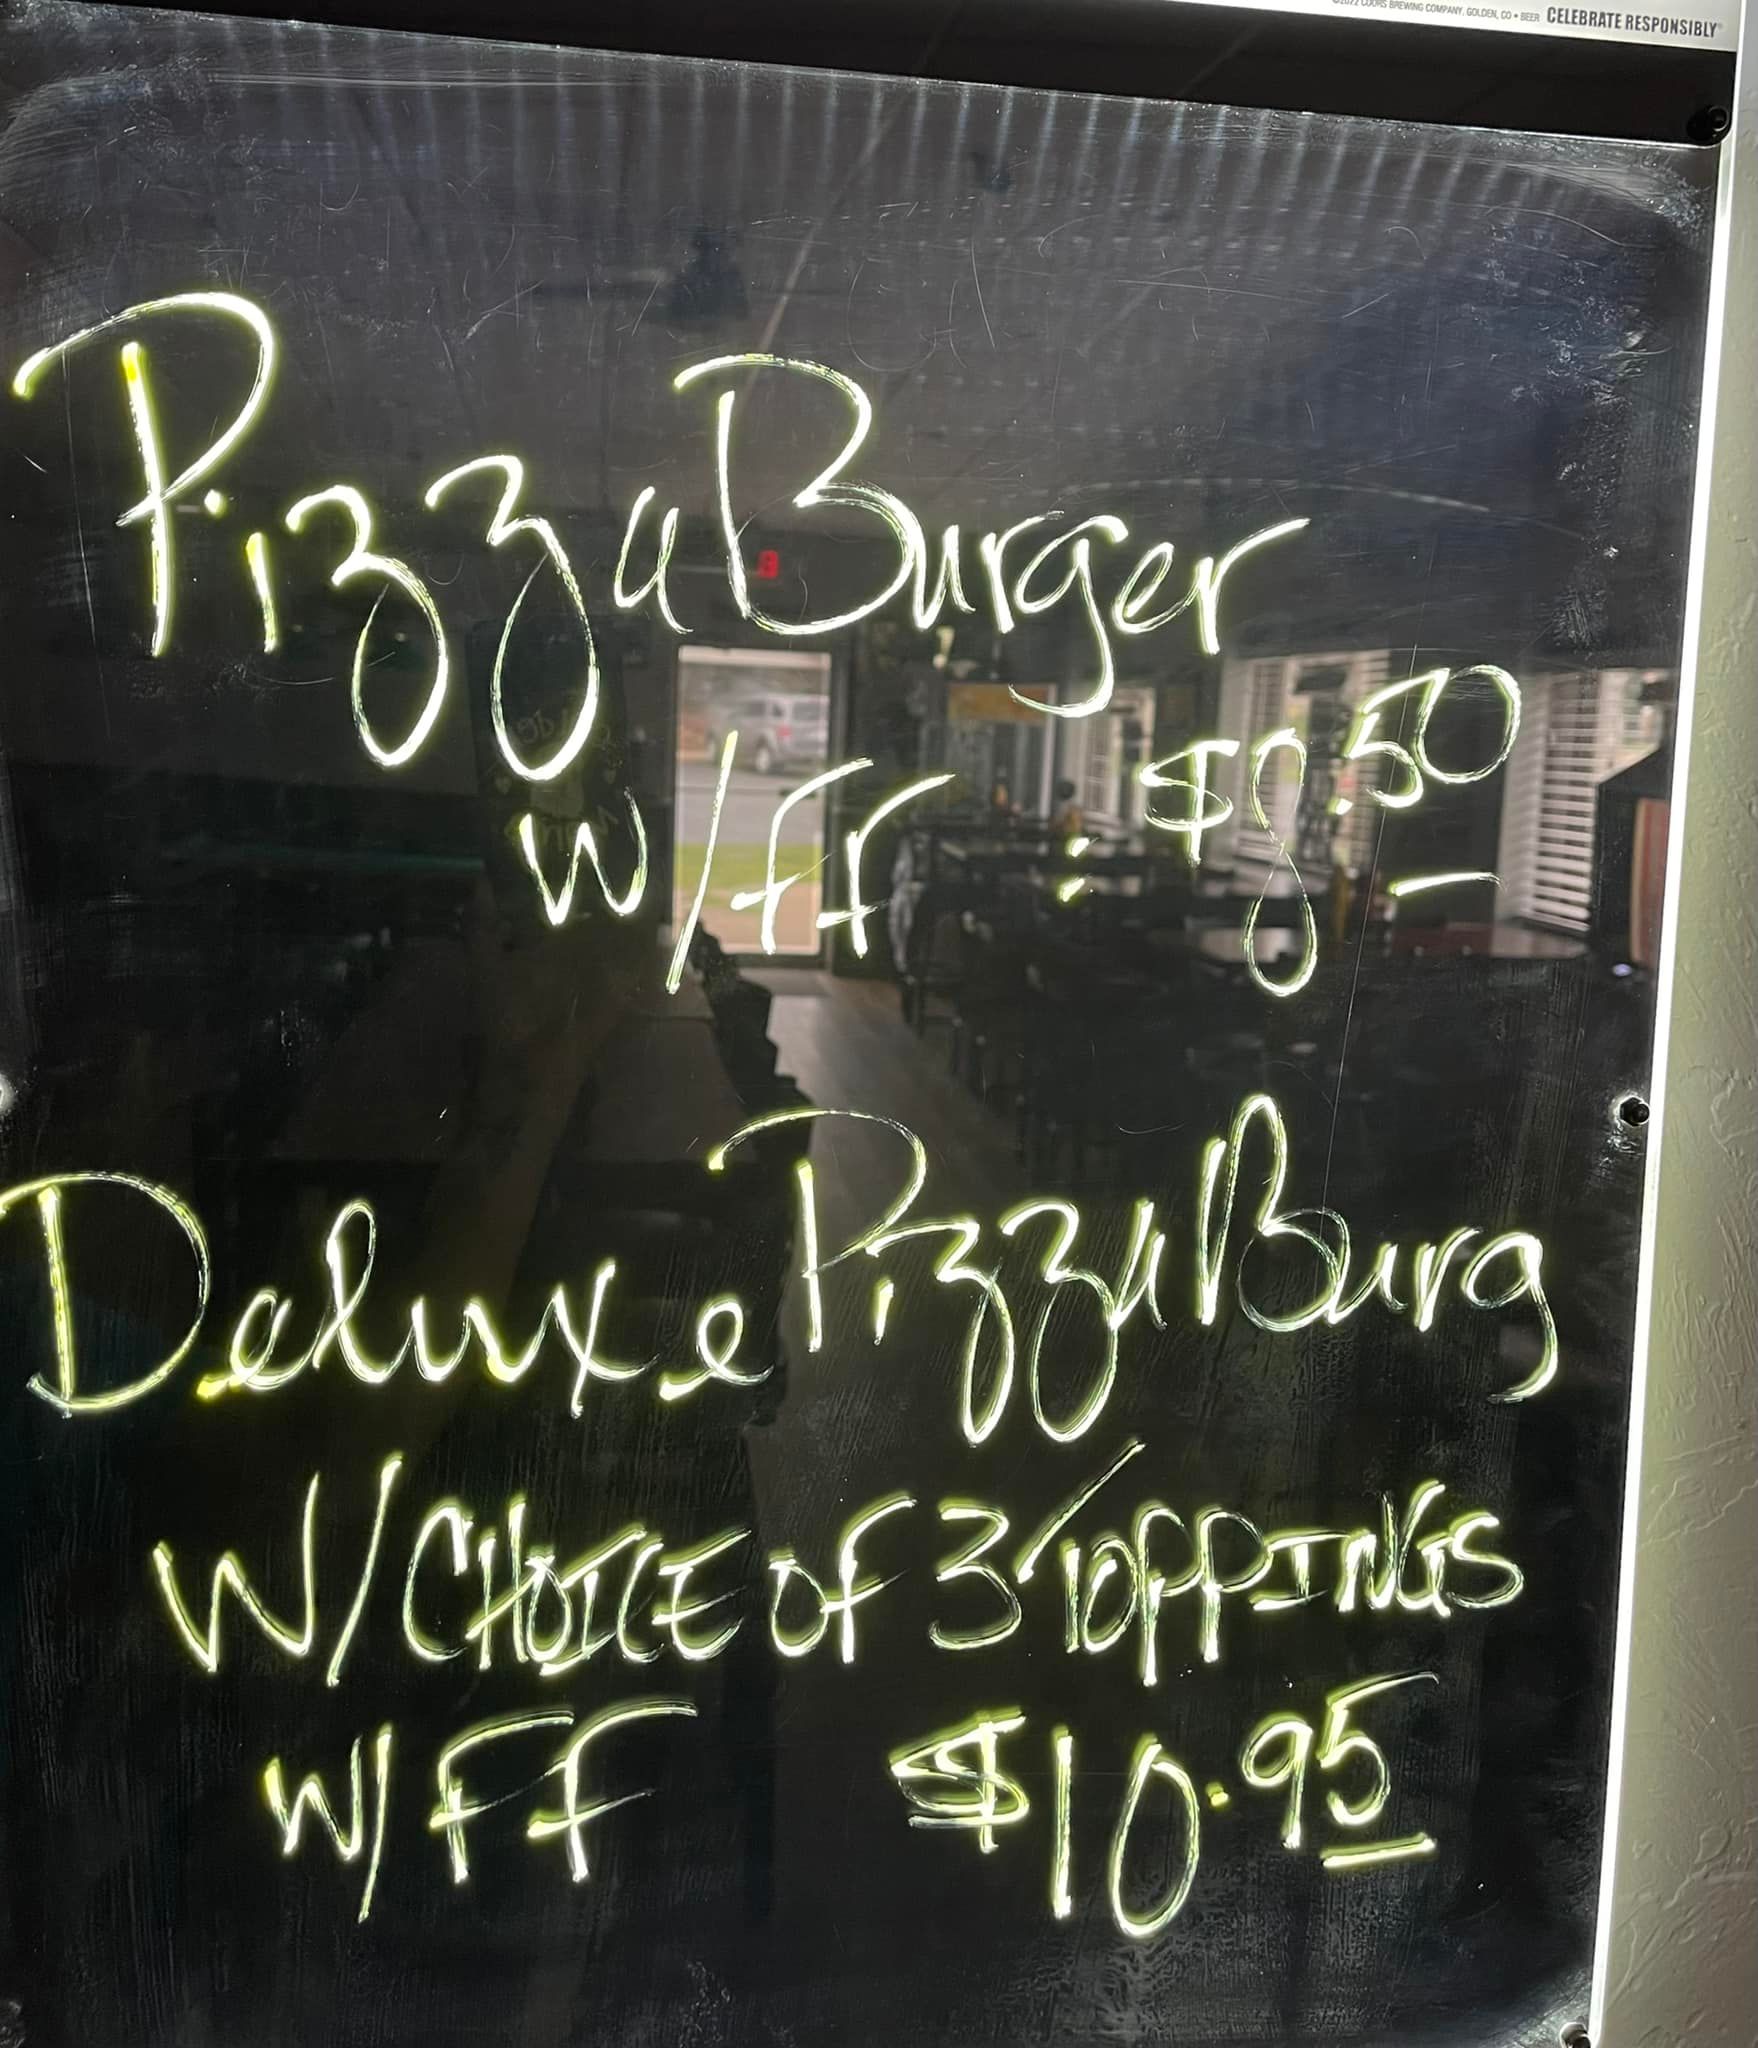 ©2022 COORS BREWING COMPANY, GOLDEN, CO • BEER CELEBRATE RESPONSIBLY®
Pizza Burger
W/FF : $8.50
Deluxe Pizza Burg
W/CHOICE OF 3 TOPPINGS
W/FF $10.95